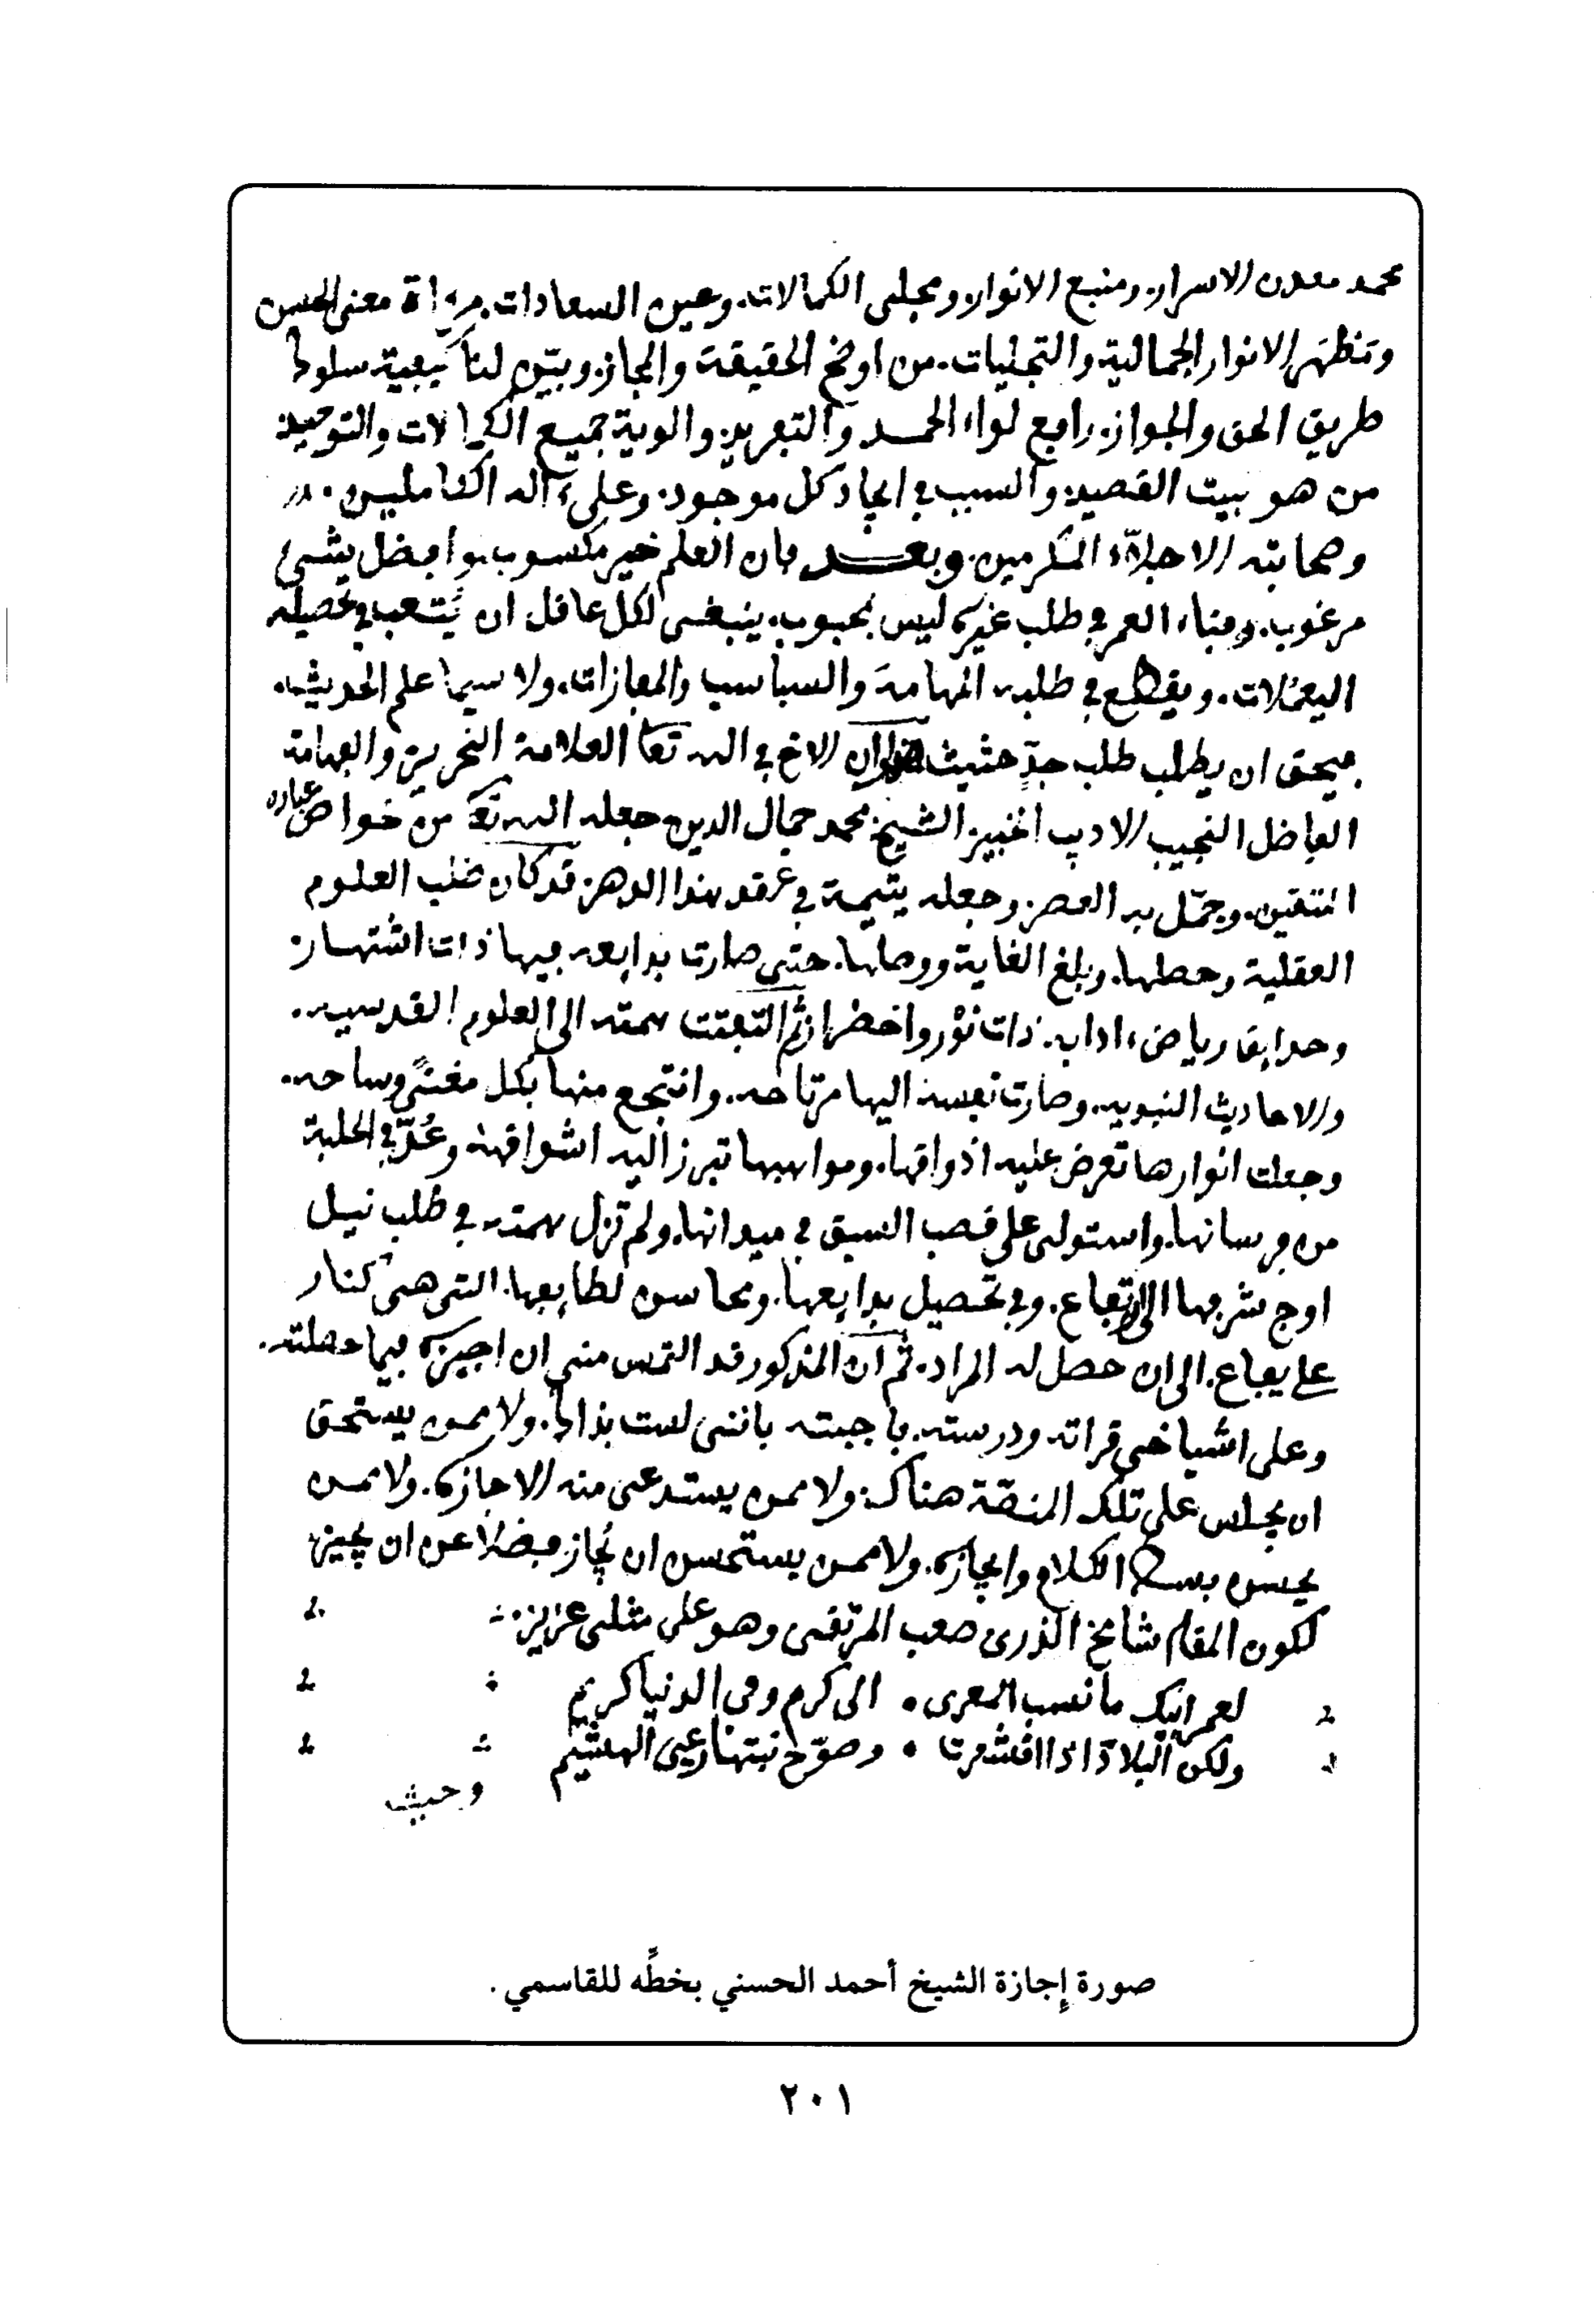 محمد معدن الاسرار. ومنبع الانوار. ومجلى الكمالات. وعين السعادات. مرءاة معنى الحسن
ومظهر الانوار الجمالية والتجليات. من اوضح الحقيقة والمجاز. وبيّن لنا كيفية سلوك
طريق الحق والجواز. رافع لواء الحمد والتفريد. والوية جميع الكمالات والتوحيد
من هو بيت القصيد. والسبب في ايجاد كل موجود. وعلى ءاله الكاملين.
وصحابته الاجلاّء المكرمين. وبعد فان العلم خير مكسوب. وافضل شيء
مرغوب. وفناء العمر في طلب غيره ليس بمحبوب. ينبغى لكل عاقل ان يُتعب في تحصيله
اليعملات. ويقطع في طلبه المهامة والسباسب والمفازات. ولا سيما علم الحديث.
فيحق ان يطلب طلب جدٍ حثيث وان الاخ في الله تعا العلامة النحرير. والفهامة
الفاضل النجيب الاديب الخبير. الشيخ محمد جمال الدين جعله الله تعا من خواص عباده
المتقين. وجمّل به العصر. وجعله يتيمة في عقد هذا الدهر. قد كان طلب العلوم
العقلية وحصلها. وبلغ الغاية ووصلها. حتى صارت بدايعه فيها ذات اشتهار
وحدايق رياض ءادابه. ذات نوْر واخضرار. ثم التفتت همته الى العلوم القدسيه.
والاحاديث النبويه. وصارت نفسه اليها مرتاحه. وانتجع منها بكل مغنىً وساحه.
وجعلت انوارها تعرض عليه اذواقها. ومواهبها تبرز اليه اشواقها. وعُدّ في الحلبة
من فرسانها. واستولى على قصب السبق في ميدانها. ولم تزل همته في طلب نيل
اوج شرفها الى ارتفاع. وفي تحصيل بدايعها. ومحاسن لطايفها. التى هى كنار
على يفاع. الى ان حصل له المراد. ثم ان المذكور قد التمس منى ان اجيزه فيما حصلته.
وعلى اشياخى قراته ودرسته. فاجبته باننى لست بذاك. ولا ممن يستحق
ان يجلس على تلك المنصة هناك. ولا ممن يستدعى منه الاجازه. ولا ممن
يحسن بسط الكلام وايجازه. ولا ممن يستحسن ان يُجاز فضلا عن ان يجيز
لكون المقام شامخ الذرى صعب المرتقى وهو على مثلى عزيز.
لعمر ابيك ما نسب المعرى . الى كرم وفى الدنيا كريم
ولكن البلاد اذا اقشعرت . وصوّح نبتها رعى الهشيم
وحيث
صورة إجازة الشيخ أحمد الحسني بخطّه للقاسمي .
٢٠١